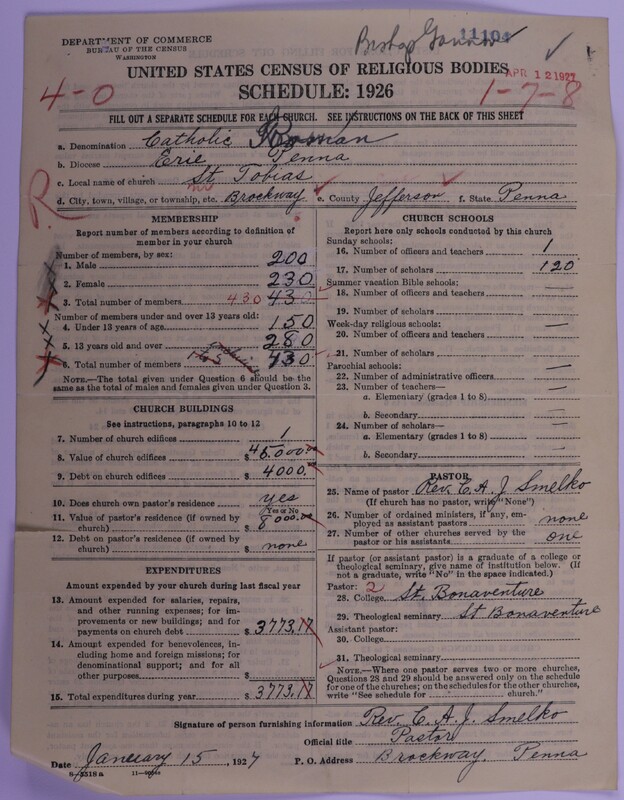 DEPARTMENT OF COMMERCE
BUREAU OF THE CENSUS
WASHINGTON
Bishop Gannon
11104
UNITED STATES CENSUS OF RELIGIOUS BODIES
APR 12 1927
4-0
SCHEDULE: 1926
1-7-8
FILL OUT A SEPARATE SCHEDULE FOR EACH CHURCH. SEE INSTRUCTIONS ON THE BACK OF THIS SHEET
a. Denomination Catholic Roman
b. Diocese Erie Penna
c. Local name of church St. Tobias
R
d. City, town, village, or township, etc. Brockway e. County Jefferson f. State Penna
MEMBERSHIP
Report number of members according to definition of member in your church
Number of members, by sex:
1. Male 200
2. Female 230
3. Total number of members 430 430
Number of members under and over 13 years old:
4. Under 13 years of age 150
5. 13 years old and over 280
6. Total number of members 430
NOTE.—The total given under Question 6 should be the same as the total of males and females given under Question 3.
CHURCH BUILDINGS
See instructions, paragraphs 10 to 12
7. Number of church edifices 1
8. Value of church edifices $ 45,000.00
9. Debt on church edifices $ 4000.
10. Does church own pastor's residence yes
Yes or No
11. Value of pastor's residence (if owned by church) $ 8000.
12. Debt on pastor's residence (if owned by church) $ none
EXPENDITURES
Amount expended by your church during last fiscal year
13. Amount expended for salaries, repairs, and other running expenses; for improvements or new buildings; and for payments on church debt $ 3773.17
14. Amount expended for benevolences, including home and foreign missions; for denominational support; and for all other purposes $
15. Total expenditures during year $ 3773.17
CHURCH SCHOOLS
Report here only schools conducted by this church
Sunday schools:
16. Number of officers and teachers 1
17. Number of scholars 120
Summer vacation Bible schools:
18. Number of officers and teachers —
19. Number of scholars —
Week-day religious schools:
20. Number of officers and teachers —
21. Number of scholars —
Parochial schools:
22. Number of administrative officers —
23. Number of teachers—
a. Elementary (grades 1 to 8) —
b. Secondary —
24. Number of scholars—
a. Elementary (grades 1 to 8) —
b. Secondary —
PASTOR
25. Name of pastor Rev. C. A. J. Smelko
(If church has no pastor, write "None")
26. Number of ordained ministers, if any, employed as assistant pastors none
27. Number of other churches served by the pastor or his assistants one
If pastor (or assistant pastor) is a graduate of a college or theological seminary, give name of institution below. (If not a graduate, write "No" in the space indicated.)
Pastor: 2
28. College St. Bonaventure
29. Theological seminary St Bonaventure
Assistant pastor:
30. College
31. Theological seminary
NOTE.—Where one pastor serves two or more churches, Questions 28 and 29 should be answered only on the schedule for one of the churches; on the schedules for the other churches, write "See schedule for church."
Signature of person furnishing information Rev. C. A. J. Smelko
Official title Pastor
Date January 15, 1927 P. O. Address Brockway, Penna